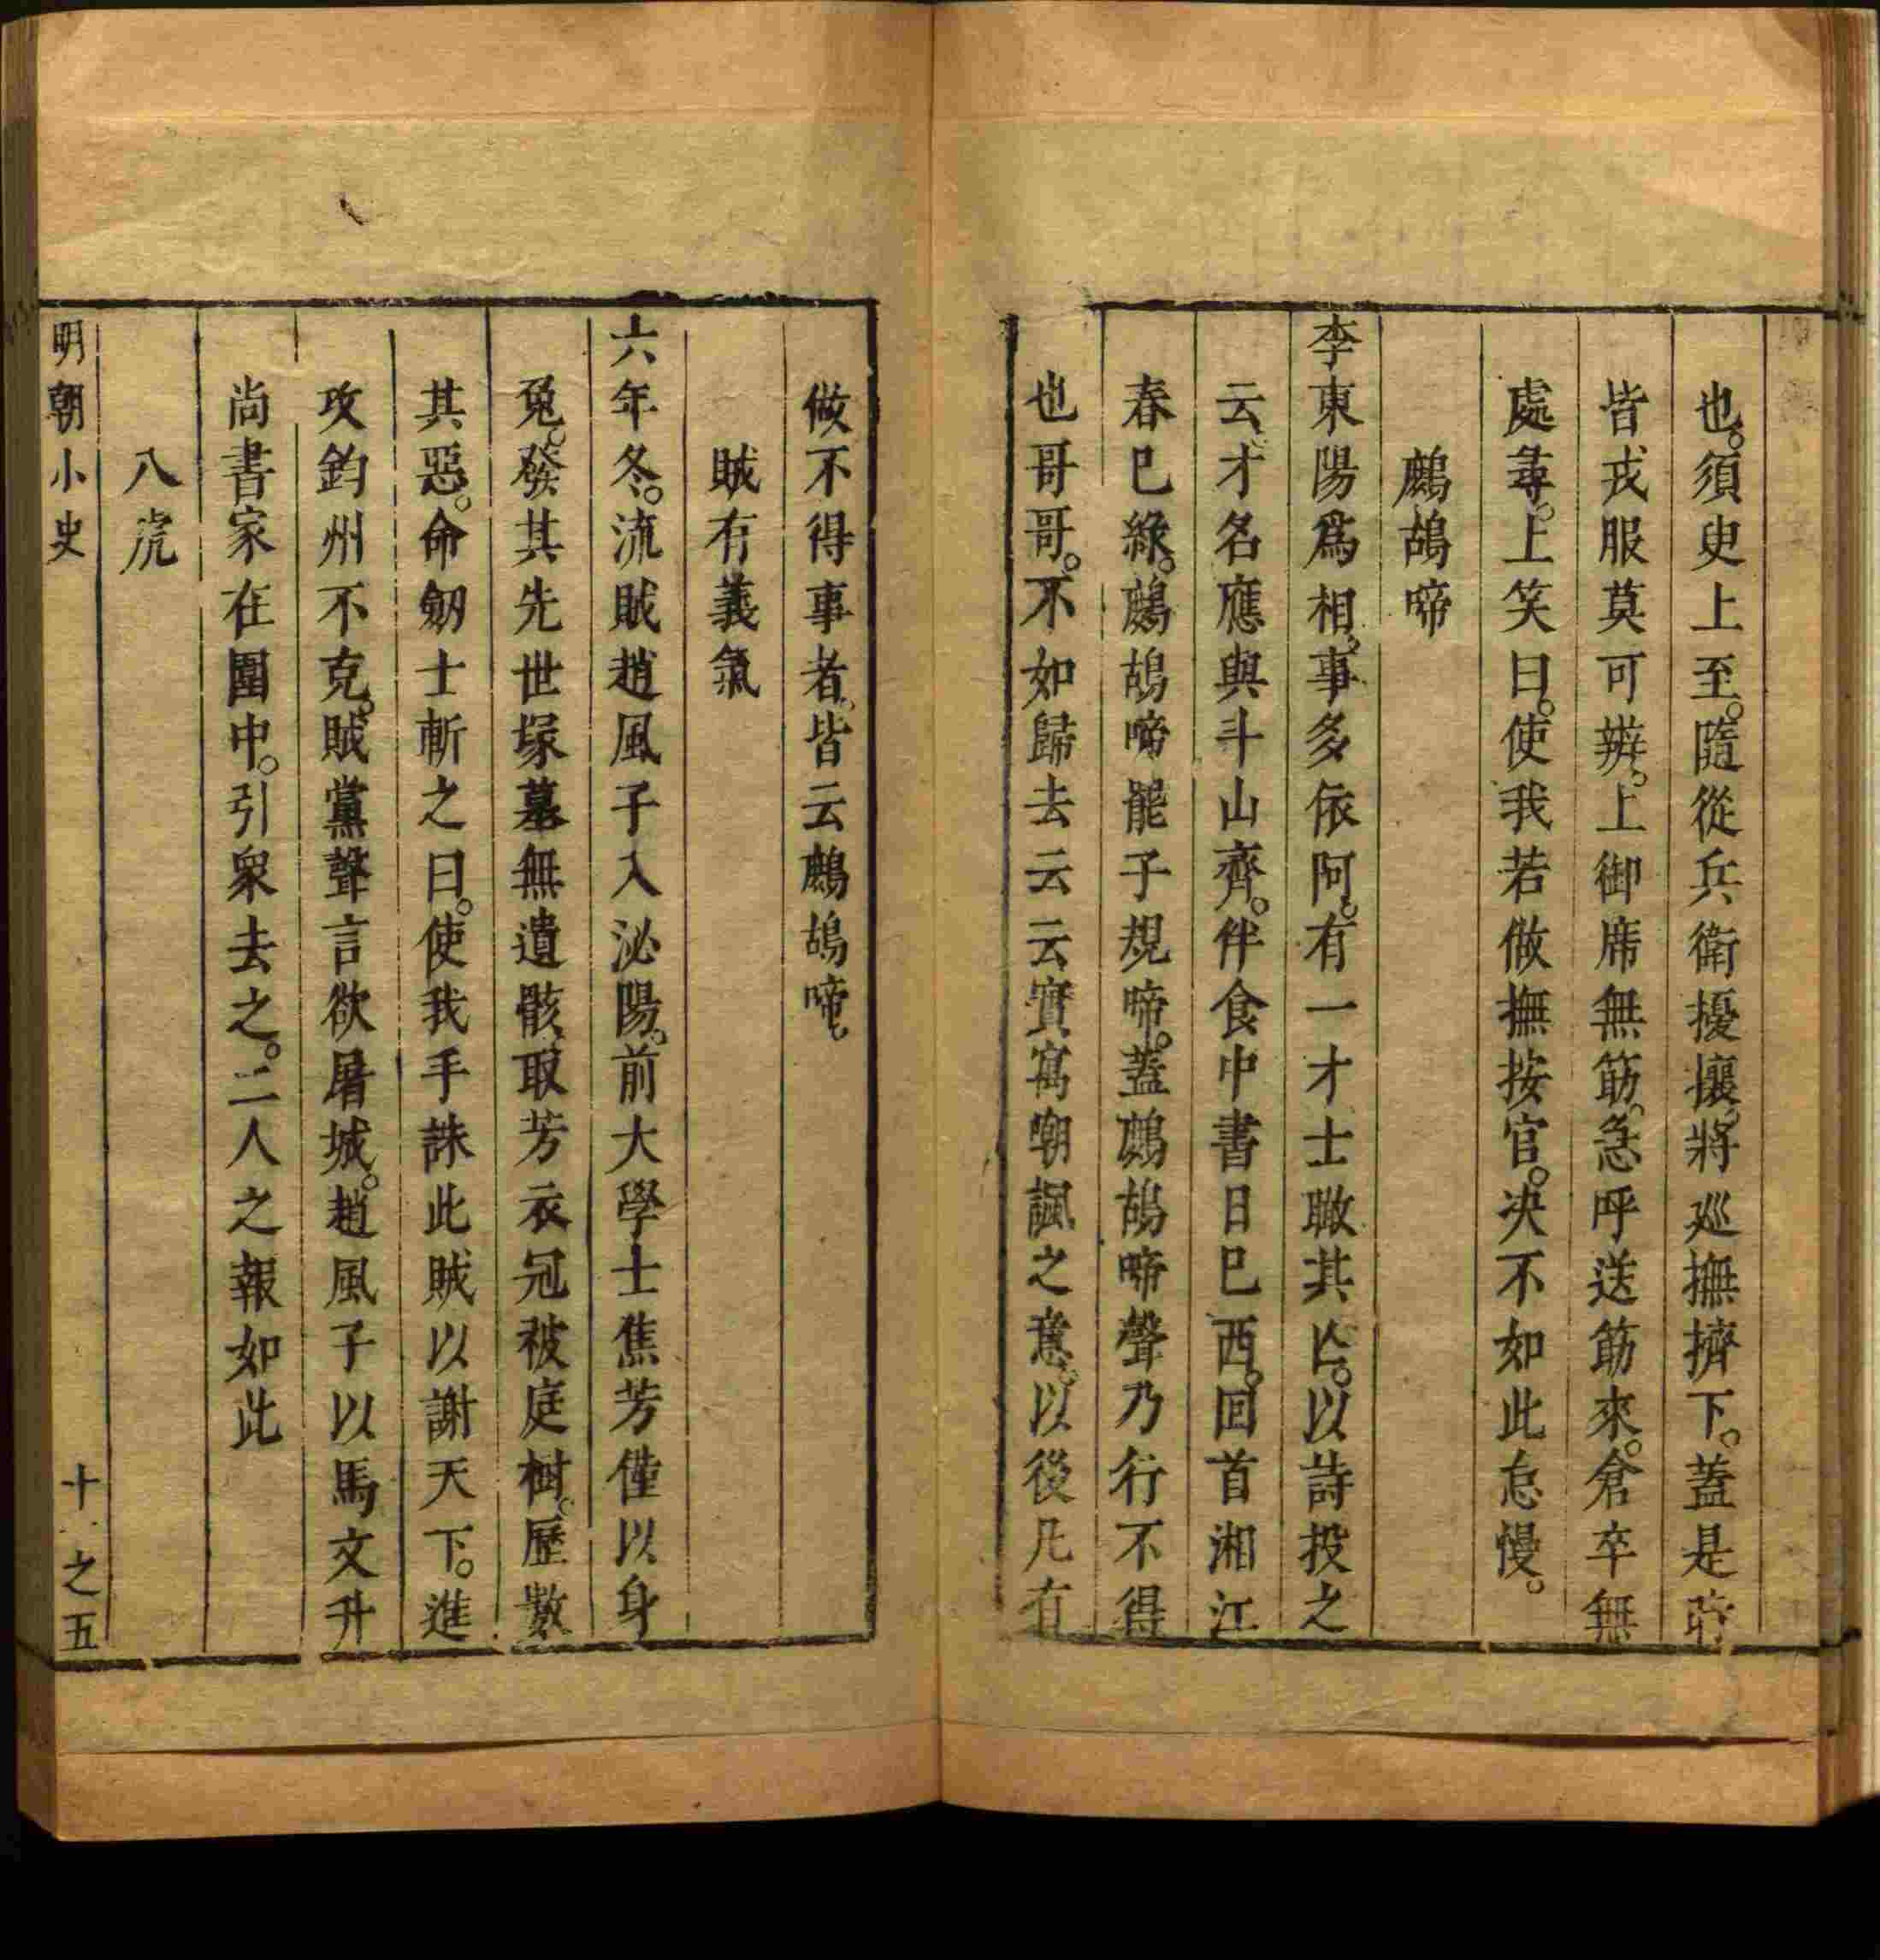 也。須史上至。隨從兵衛擾攘。將廵撫擠下。蓋是時
皆戎服莫可辨。上御席無筯。急呼送筯來。倉卒無
處尋。上笑曰。使我若做撫按官。决不如此怠慢。
鷓鴣啼
李東陽爲相。事多依阿。有一才士瞰其亾。以詩投之
云。才名應與斗山齊。伴食中書日巳西。回首湘江
春巳綠。鷓鴣啼罷子規啼。蓋鷓鴣啼聲乃行不得
也哥哥。不如歸去云云實寓嘲諷之意。以後凡有
做不得事者。皆云鷓鴣啼。
賊有義氣
六年冬。流賊趙風子入泌陽。前大學士焦芳僅以身
免。發其先世塚墓無遺骸取芳衣冠被庭樹。歷數
其惡。命劒士斬之曰。使我手誅此賊以謝天下。進
攻鈞州不克。賊黨聲言欲屠城。趙風子以馬文升
尚書家在圍中。引衆去之。二人之報如此
八虎
明朝小史 十之五